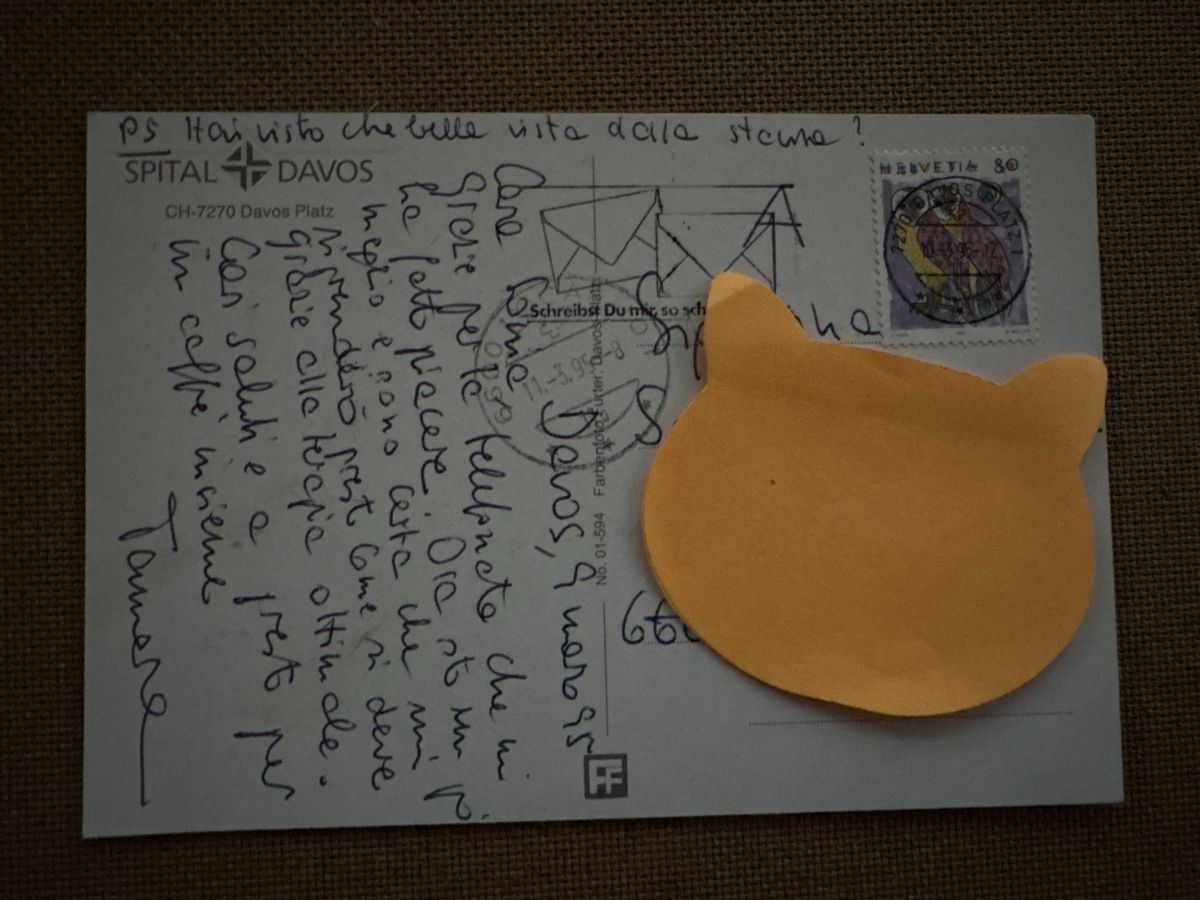 PS Hai visto che bella vista dalla stanza?
SPITAL DAVOS
CH-7270 Davos Platz
Davos, 9 marzo 95
Cara
Grazie per la telefonata che mi
ha fatto piacere. Ora sto un po'
meglio e sono certa che mi
riprenderò presto come si deve
grazie alla terapia ottimale.
Cari saluti e a presto per
un caffè insieme
Tamara
No. 01-594 Farbenfoto Furter, Davos Platz
FF
Schreibst Du mir, so sch
HELVETIA 80
7270 DAVOS PLATZ 1
11.-3.95-12
11.-3.95-8